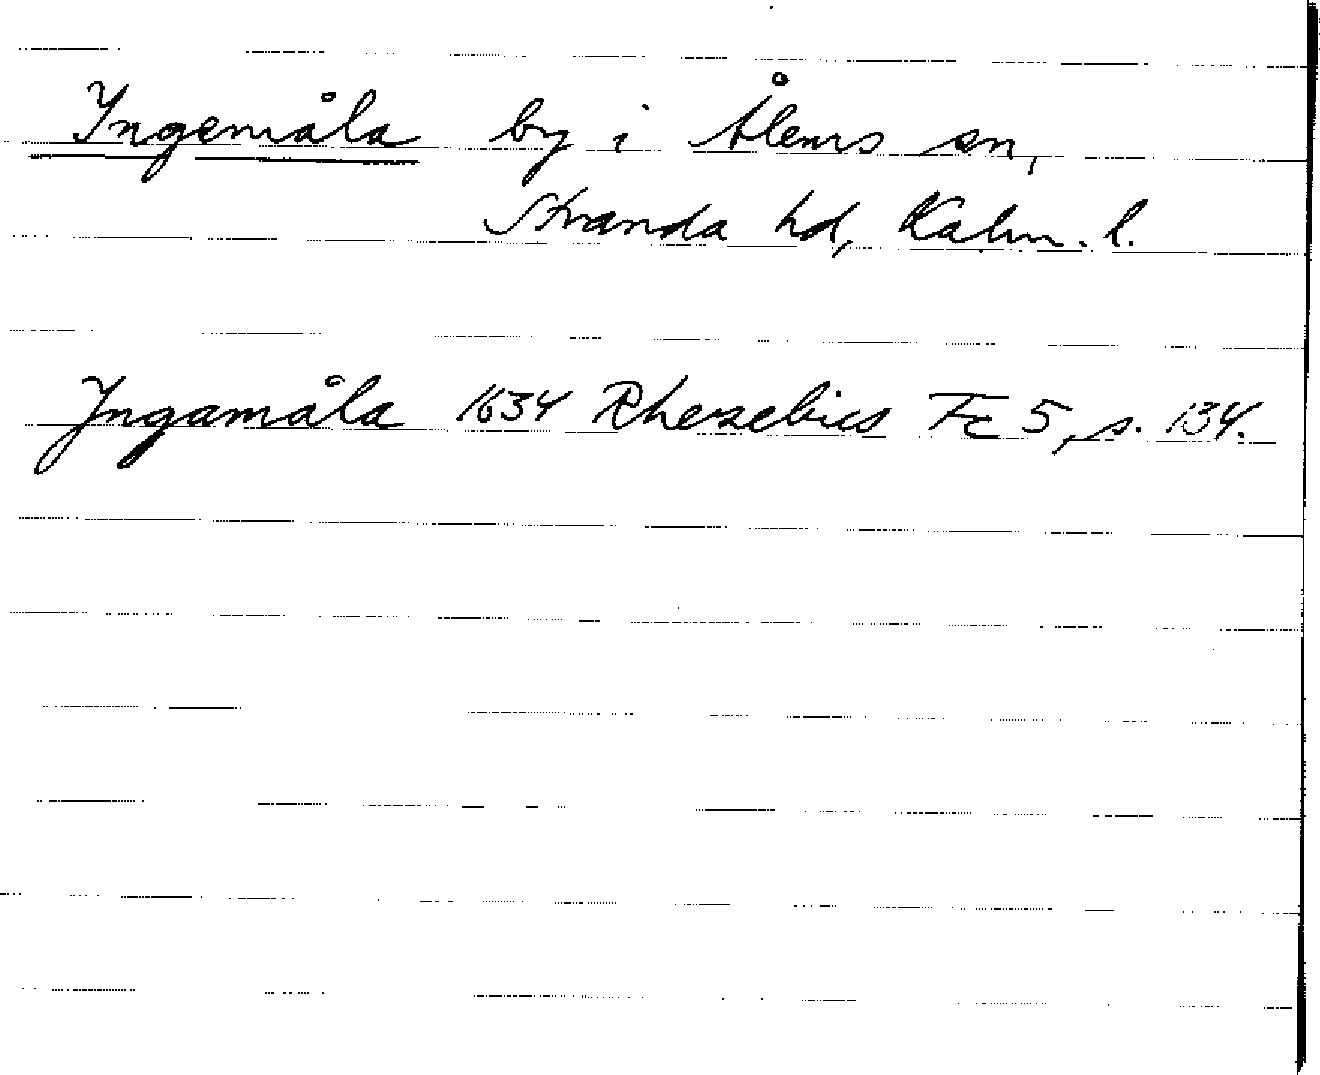 Ingemåla by i Ålems sn,
Stranda hd, Kalm. l.
Ingamåla 1634 Rhezelius Fc 5, s. 134.